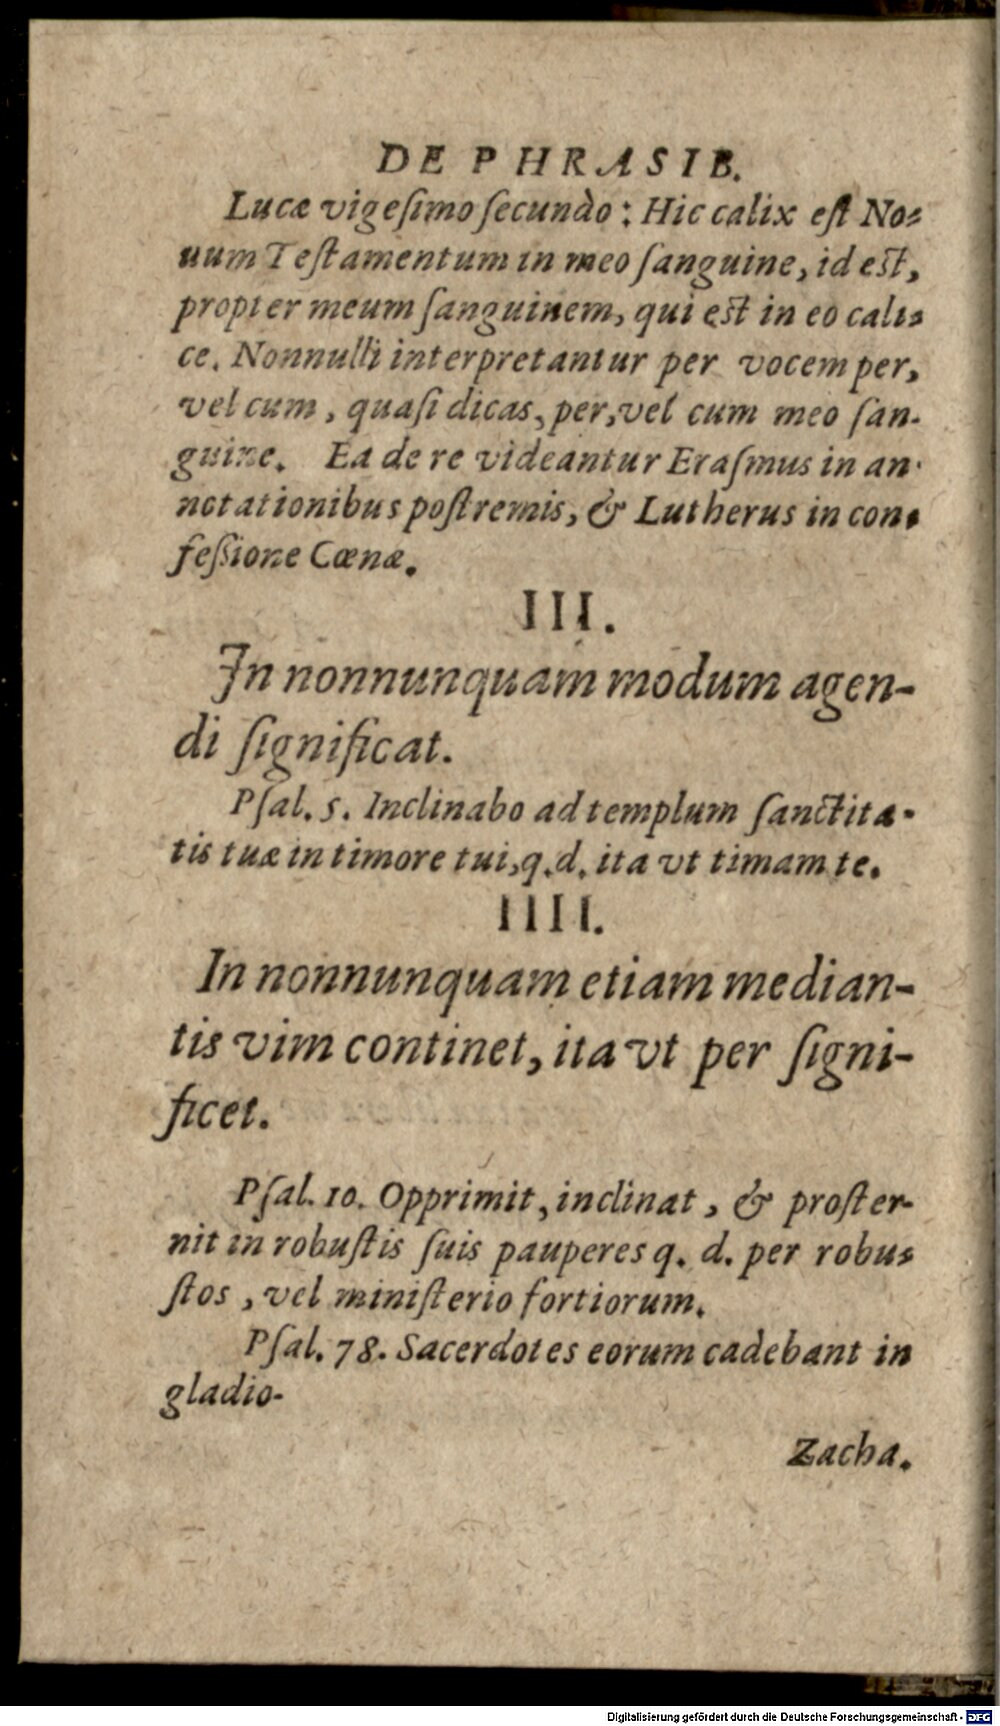 DE PHRASIB.
Lucæ vigeſimo ſecundò: Hic calix eſt No-
uum Teſtamentum in meo ſanguine, id eſt,
propter meum ſanguinem, qui eſt in eo cali-
ce. Nonnulli interpretantur per vocem per,
vel cum, quaſi dicas, per, vel cum meo ſan-
guine. Ea de re videantur Eraſmus in an-
notationibus poſtremis, & Lutherus in con-
feſsione Cœnæ.
III.
In nonnunquam modum agen-
di ſignificat.
Pſal. 5. Inclinabo ad templum ſanctita-
tis tuæ in timore tui, q.d. ita vt timam te.
IIII.
In nonnunquam etiam median-
tis vim continet, ita vt per ſigni-
ficet.
Pſal. 10. Opprimit, inclinat, & proſter-
nit in robuſtis ſuis pauperes q. d. per robu-
ſtos, vel miniſterio fortiorum.
Pſal. 78. Sacerdotes eorum cadebant in
gladio.
Zacha.
Digitalisierung gefördert durch die Deutsche Forschungsgemeinschaft - DFG